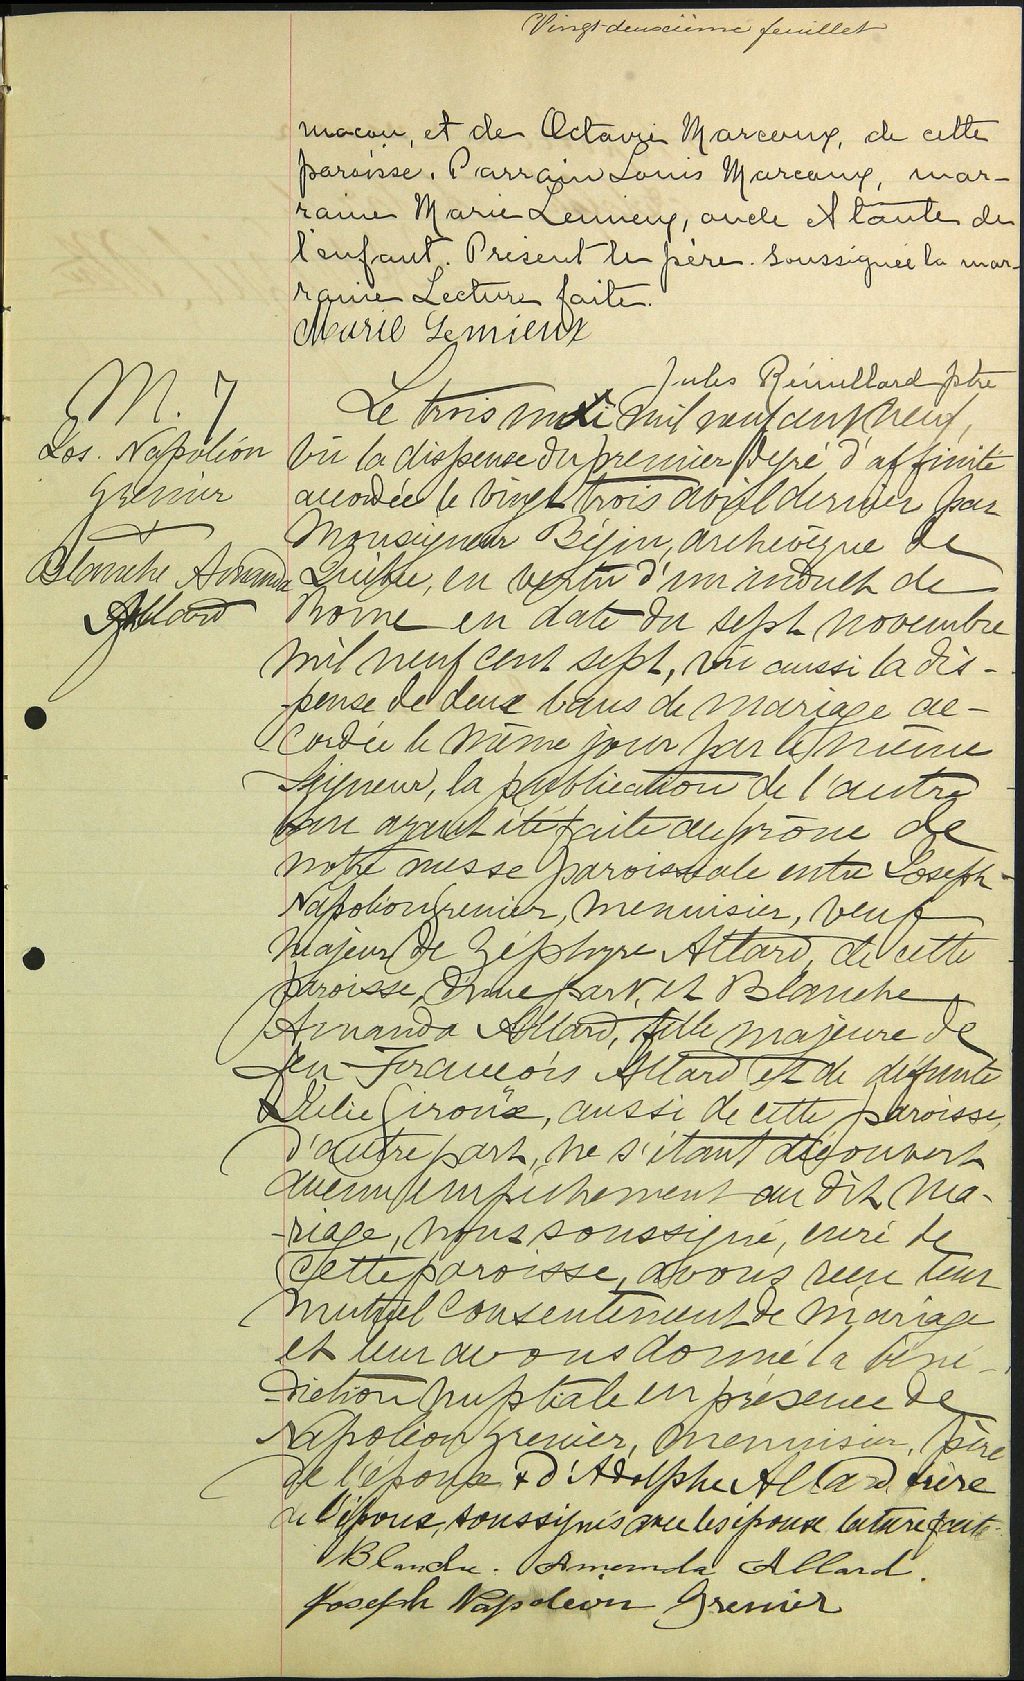 Vingt-deuxième feuillet
macon, et de Octavie Marcoux, de cette
paroisse. Parrain Louis Marcoux, mar-
raine Marie Lemieux, oncle et tante de
l'enfant. Présent le père. Soussignée la mar-
raine Lecture faite.
Marie Lemieux
Jules Rémillard ptre
M. 7
Jos. Napoléon
Grenier
&
Blanche Amanda
Allard
Le trois mai mil neuf cent neuf,
vu la dispense du premier degré d'affinité
accordée le vingt trois avril dernier par
Monseigneur Bégin, archevêque de
Québec, en vertu d'un indult de
Rome en date du sept novembre
mil neuf cent sept, vu aussi la dis-
-pense de deux bans de mariage ac-
cordée le même jour par le même
Seigneur, la publication de l'autre
ban ayant été faite au prône de
notre messe paroissiale entre Joseph
Napoléon Grenier, menuisier, veuf
majeur de Zéphyre Allard, de cette
paroisse, d'une part, et Blanche
Amanda Allard, fille majeure de
feu François Allard et de défunte
Julie Giroux, aussi de cette paroisse,
d'autre part, ne s'étant découvert
aucun empêchement au dit ma-
-riage, nous soussigné, curé de
cette paroisse, avons reçu leur
mutuel consentement de mariage
et leur avons donné la béné-
-diction nuptiale en présence de
Napoléon Grenier, menuisier, père
de l'époux & d'Adolphe Allard frère
de l'épouse, soussignés avec les époux. lecture faite.
Blanche. Amanda Allard.
Joseph Napoléon Grenier